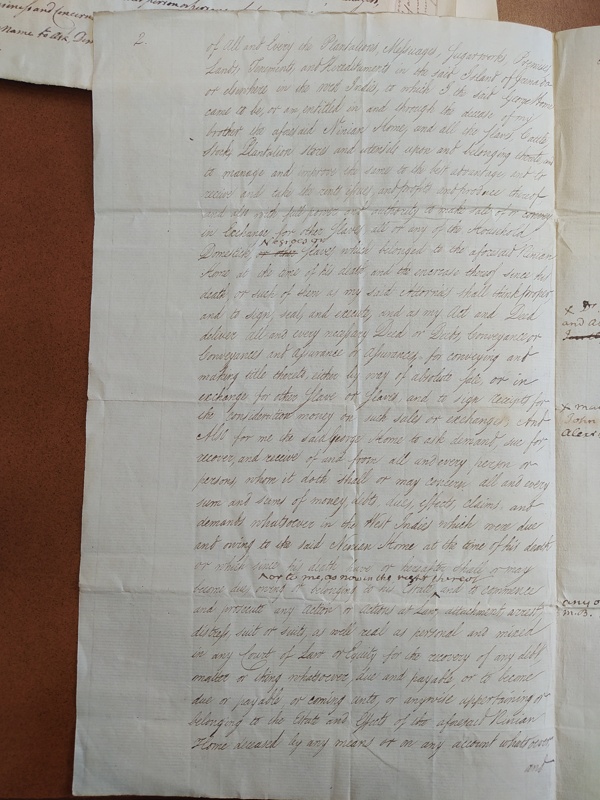 2.
of all and Every the Plantations, Messuages, Sugarworks, Premises,
Lands, Tenements, and Hereditaments in the said Island of Grenada
or elsewhere in the West Indies, to which I the said George Home
came to be, or am entitled in and through the decease of my
brother the aforesaid Ninian Home, and all the Slaves, Cattle
Stocks Plantation stores and utensils upon and belonging thereto, and
to manage and improve the same to the best advantage and to
receive and take the rents issues and profits and produce thereof
and also with full power and authority to make sale of or convey
in Exchange for other Slaves all or any of the Household
Negroes or
Domestick Slaves which belonged to the aforesaid Ninian
Home at the time of his death and the increase thereof since his
death, or such of them as my said Attornies shall think proper
and to sign, seal, and execute, and as my Act and Deed
deliver all and every necessary Deed or Deeds, Conveyance or
Conveyances and Assurance or Assurances, for conveying and
making title thereto, either by way of absolute sale, or in
exchange for other Slave or Slaves, and to sign Receipts for
the Consideration money on such sales or exchanges, And
Also for me the said George Home to ask demand, sue for,
recover, and receive of and from all and every person or
persons, whom it doth shall or may concern all and every
sum and sums of money, debts, dues, effects, claims, and
demands whatsoever in the West Indies which were due
and owing to the said Ninian Home at the time of his death
or which since his death have or hereafter shall or may
or to me, as now in the right thereof
become due, owing or belonging to his Estate and to commence
and prosecute any action or actions at Law, attachment, arrest,
distress, suit or suits, as well real as personal and mixed
in any Court of Law or Equity for the recovery of any debt,
matter or thing whatsoever due and payable, or to become
due or payable, or coming unto, or anywise appertaining or
belonging to the Estate and Effects of the aforesaid Ninian
Home deceased by any means or on any account whatsoever,
and
and
John
Alex
any o